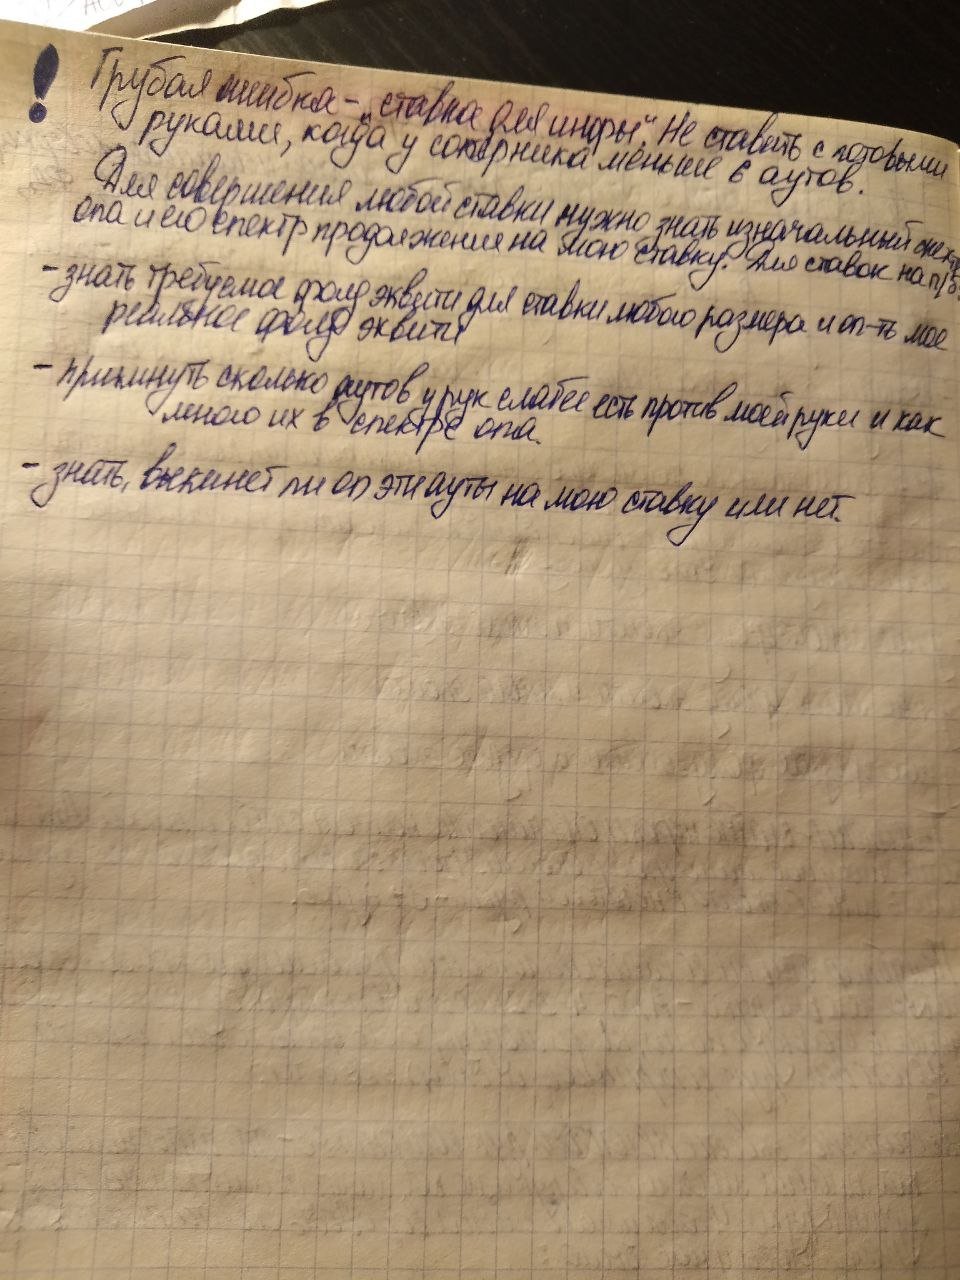 ! Грубая ошибка – „ставка для инфы". Не ставить с готовыми
руками, когда у соперника меньше 6 аутов.
Для совершения любой ставки нужно знать изначальный спектр
опа и его спектр продолжения на мою ставку. Для ставок на п/ф:
- знать требуемое фолд эквити для ставки любого размера и оп-ть мое
реальное фолд эквити
- прикинуть сколько аутов у рук слабее есть против моей руки и как
много их в спектре опа.
- знать, выкинет ли оп эти ауты на мою ставку или нет.